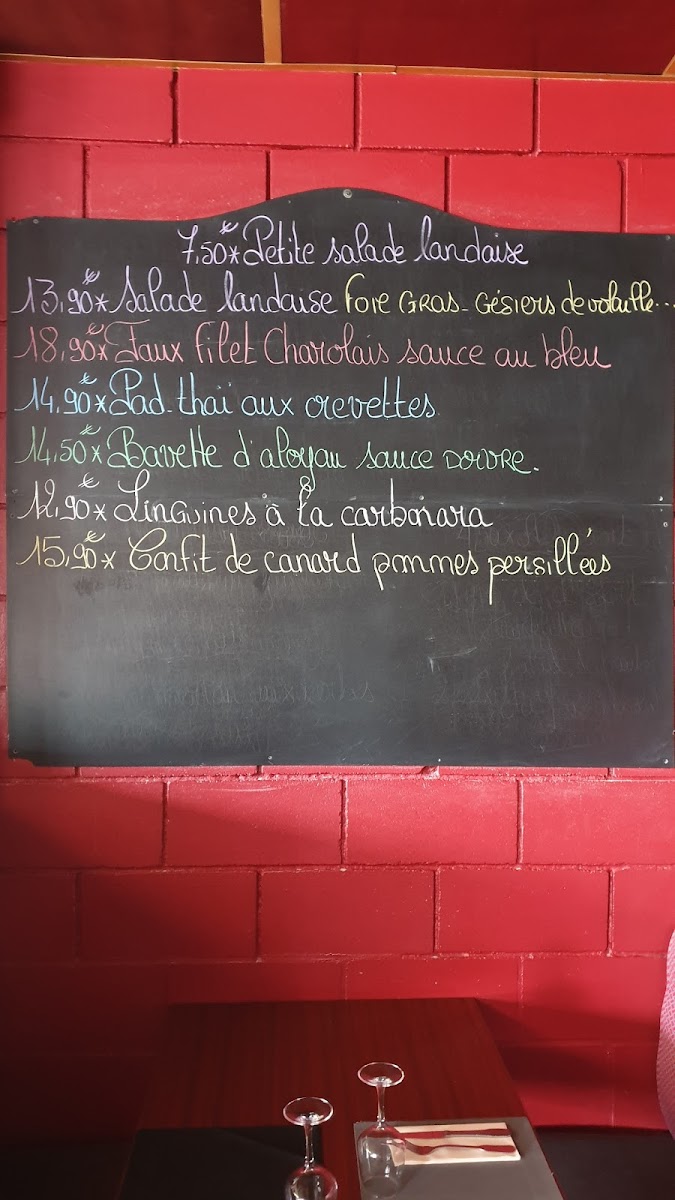 7,50€* Petite salade landaise
13,90€* Salade landaise Foie GRAS - Gésiers de volaille...
18,90€* Faux filet Charolais sauce au bleu
14,90€* Pad-thaï aux crevettes
14,50€* Bavette d'aloyau sauce POIVRE.
12,90€* Linguines à la carbonara
15,90€* Confit de canard pommes persillées